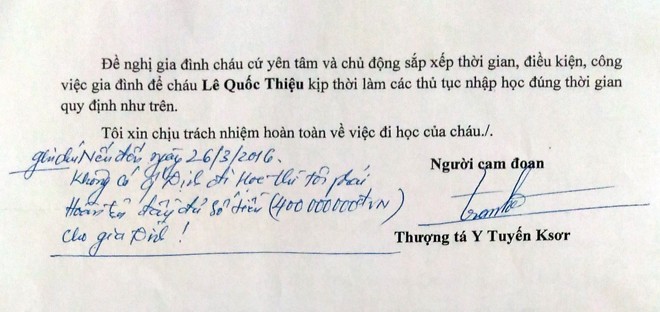 Đề nghị gia đình cháu cứ yên tâm và chủ động sắp xếp thời gian, điều kiện, công
việc gia đình để cháu Lê Quốc Thiệu kịp thời làm các thủ tục nhập học đúng thời gian
quy định như trên.
Tôi xin chịu trách nhiệm hoàn toàn về việc đi học của cháu./.
ghi chú Nếu đến ngày 26/3/2016.
Không có Định đi Học thì tôi phải
Hoàn trả đầy đủ số tiền (400000000đVN)
cho gia Đình!
Người cam đoan
Thượng tá Y Tuyến Ksơr